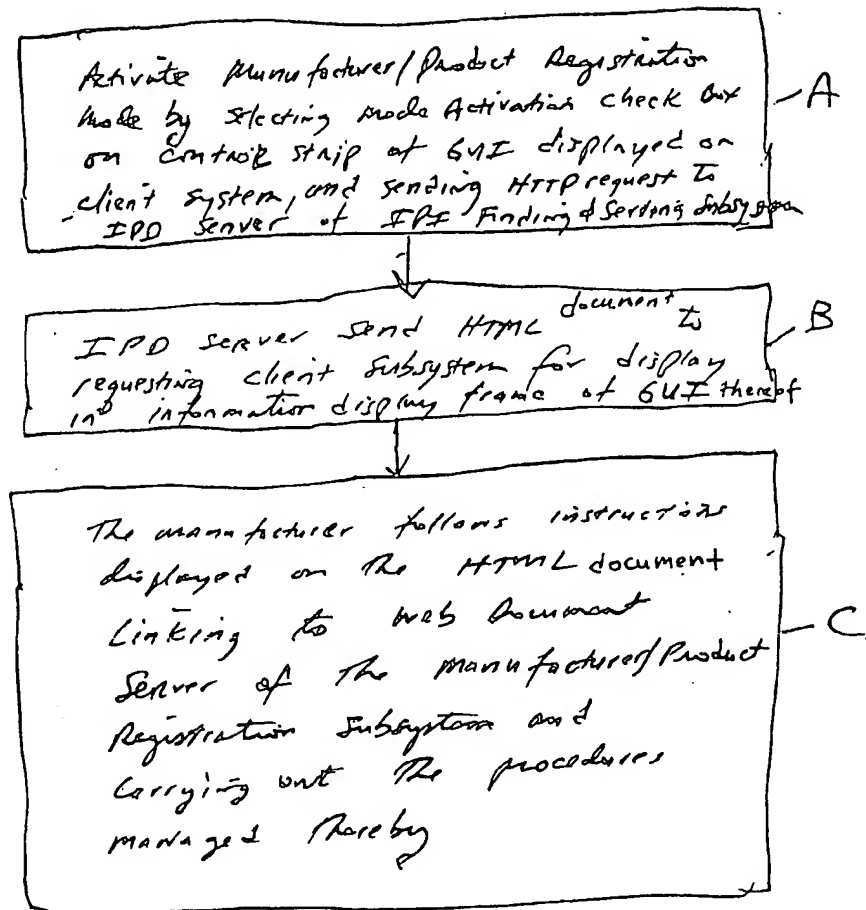 Activate Manufacturer/Product Registration
Mode by selecting mode Activation check Box
on control strip of GUI displayed on
client system, and sending HTTP request to
IPD Server of IPI Finding & Serving Subsystem
A
IPD server send HTML document to
requesting client subsystem for display
in information display frame of GUI thereof
B
The manufacturer follows instructions
displayed on the HTML document
Linking to Web Document
Server of the Manufacturer/Product
Registration Subsystem and
Carrying out the procedures
managed thereby
C